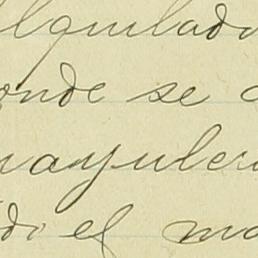 alquilado
onde se
ayuler
do el ma